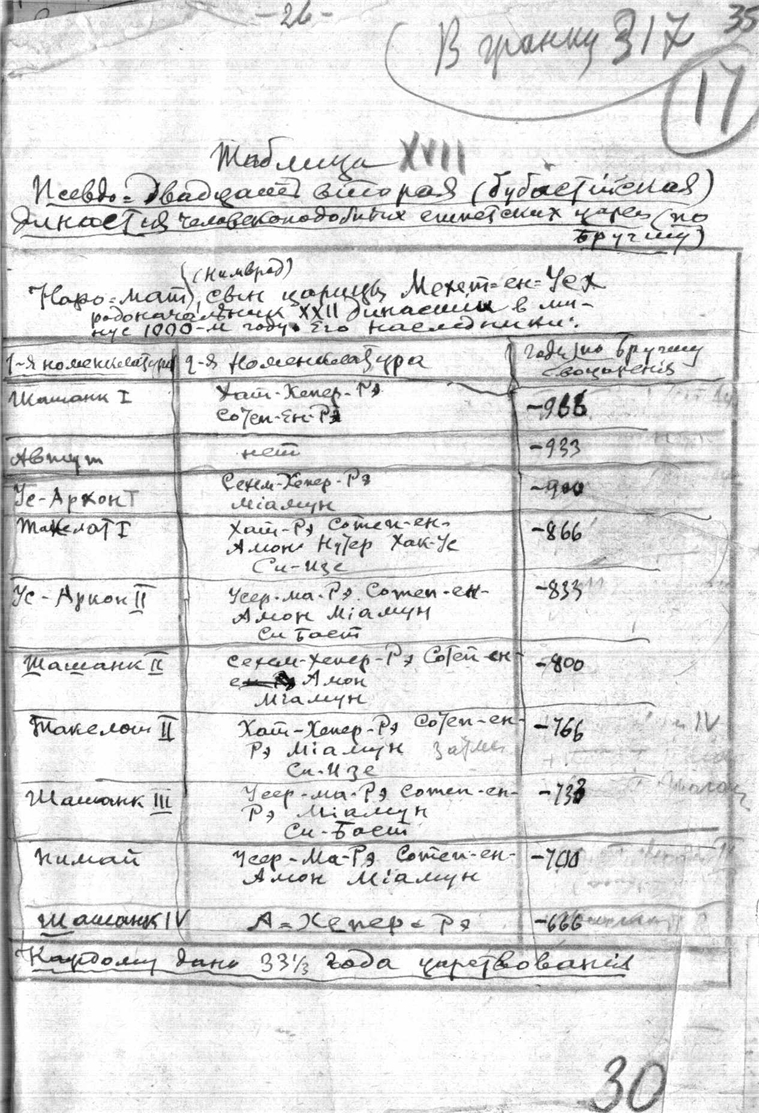 -26-
35
В гранку 317
17
Таблица XVII
Псевдо=двадцать вторая (бубастійская)
династія человекоподобных египетских царей (по
Бругшу)
(Нимврод)
Наро=мат, сын царицы Мехет=ен=Усех
родоначальник XXII династии в ми-
нус 1000-м году. Его наследники:
1-я номенклатура 2-я Номенклатура годы по Бругшу
воцаренія
Шашанк I Хат-Хепер-Рэ
Сотеп-Ен-Рэ -966
Автут нет -933
Ус-Архон I Сехем-Хепер-Рэ
Міамун -900
Такелот I Хат-Рэ Сотеп-ен- -866
Амон Нутер Хак-Ус
Си-Изе
Ус-Аркон II Усер-ма-Рэ Сотеп-ен- -833
Амон Міамун
Си Баст
Шашанк II Сехем-хепер-Рэ Сотеп-ен- -800
Амон
Міамун
Такелот II Хат-Хепер-Рэ Сотеп-ен- -766
IV
Рэ Міамун
Си-Изе
Шашанк III Усер-ма-Рэ Сотеп-ен- -733
Рэ Міамун
Си-Баст
Пимай Усер-Ма-Рэ Сотеп-ен- -700
Амон Міамун
Шашанк IV А=Хепер=Рэ -666
Каждому дано 33⅓ года царствованія
30